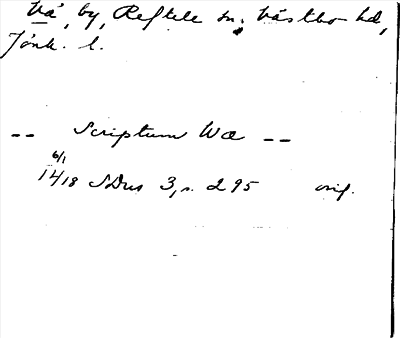 Vrå, by, Reftele sn, Västbo hd,
Jönk. l.
-- Scriptum Wœ --
6/1
1418 SDns 3, s. 295 orig.